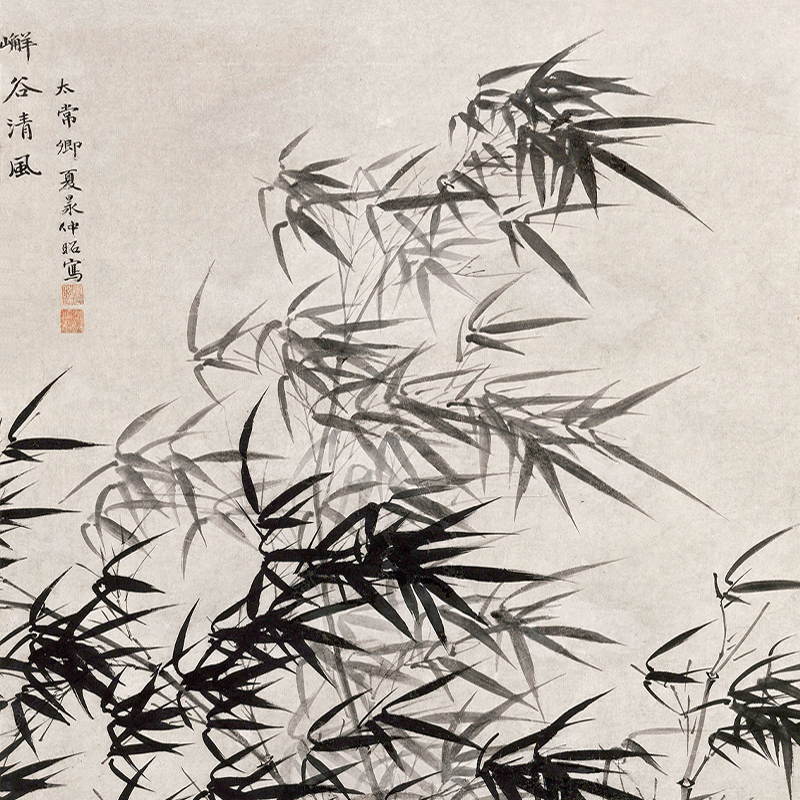 嶰谷清風
太常卿夏㫤仲昭寫